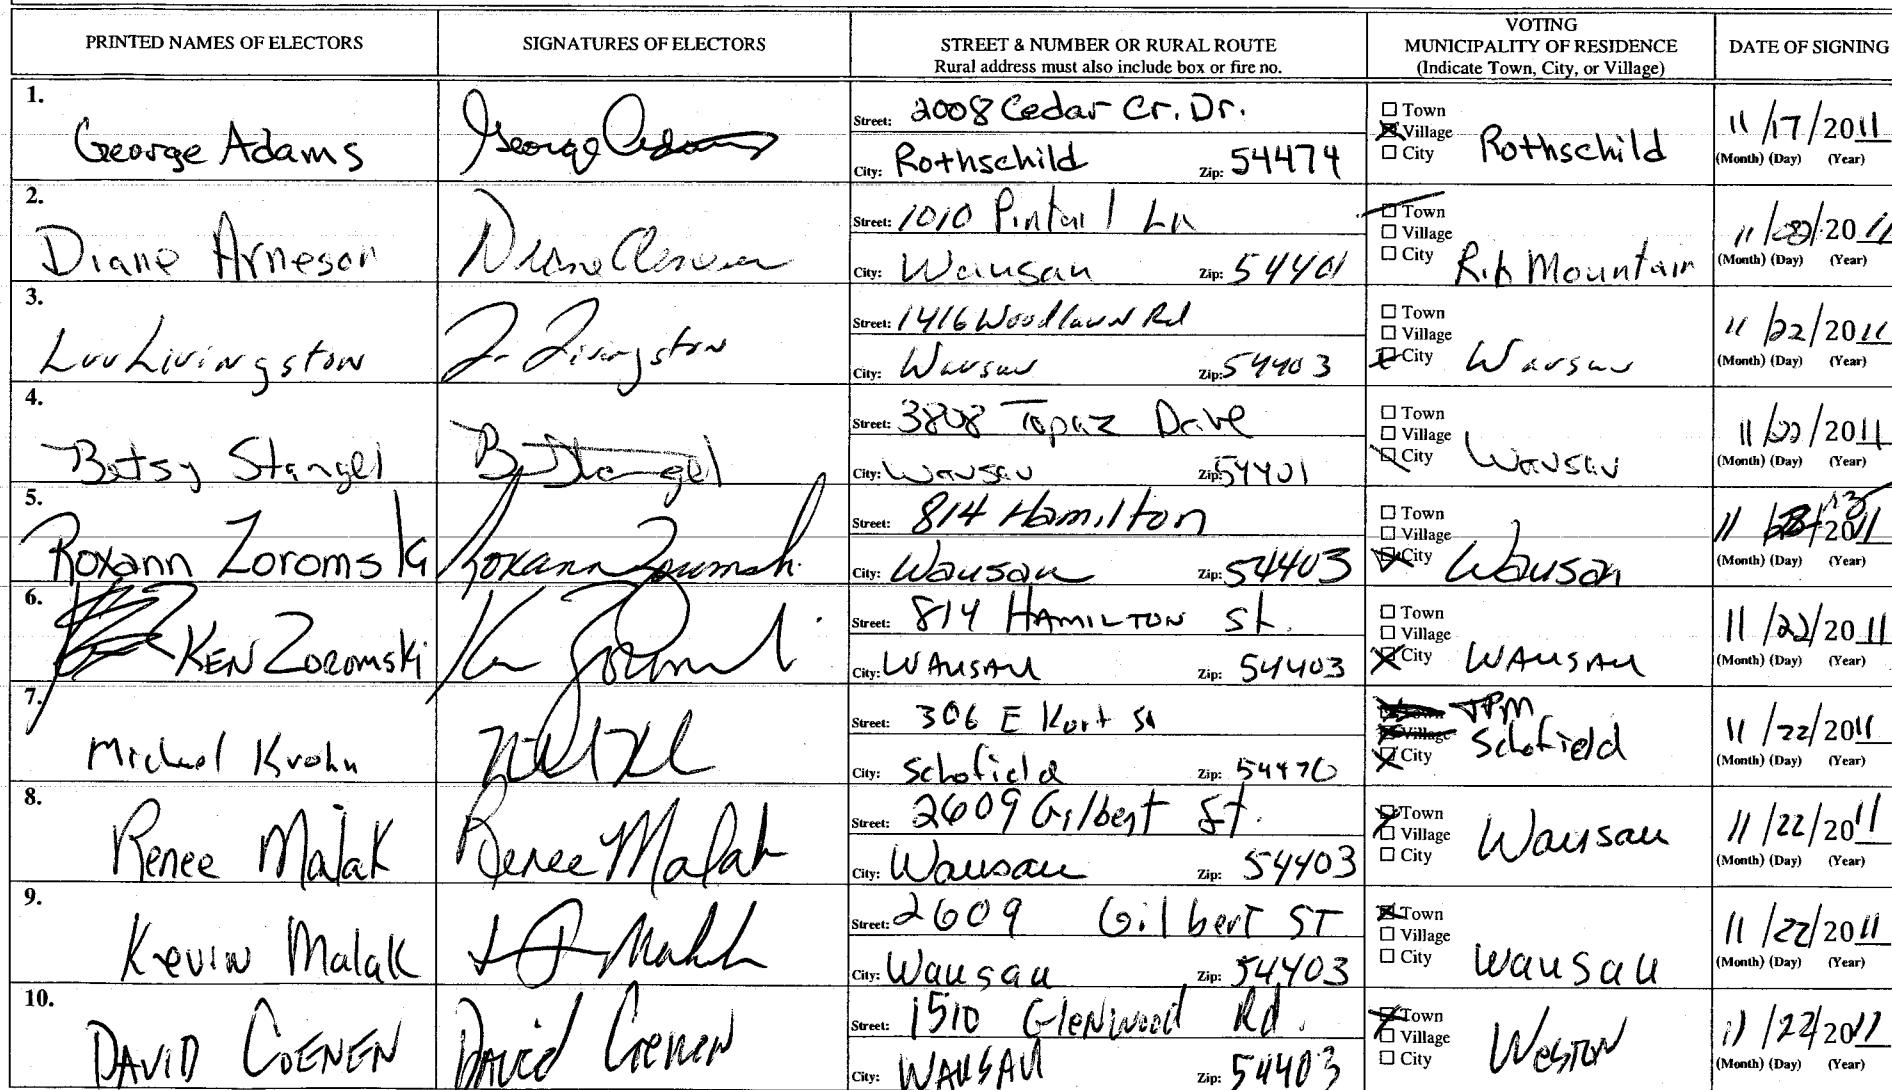 PRINTED NAMES OF ELECTORS
SIGNATURES OF ELECTORS
STREET & NUMBER OR RURAL ROUTE
Rural address must also include box or fire no.
VOTING
MUNICIPALITY OF RESIDENCE
(Indicate Town, City, or Village)
DATE OF SIGNING
1.
George Adams
George Adams
Street: 2008 Cedar Cr. Dr.
City: Rothschild Zip: 54474
Town
Village
City
Rothschild
11/17/2011
(Month) (Day) (Year)
2.
Diane Arneson
Diane Arneson
Street: 1010 Pintail Ln
City: Wausau Zip: 54401
Town
Village
City
Rib Mountain
11/ /2011
(Month) (Day) (Year)
3.
Livingston
L. Livingston
Street: 1416 Woodlawn Rd
City: Wausau Zip: 54403
Town
Village
City
Wausau
11/22/2011
(Month) (Day) (Year)
4.
Betsy Stangel
B Stangel
Street: 3808 Topaz Drive
City: Wausau Zip: 54401
Town
Village
City
Wausau
11/22/2011
(Month) (Day) (Year)
5.
Roxann Zoromski
Roxann Zoromski
Street: 814 Hamilton
City: Wausau Zip: 54403
Town
Village
City
Wausau
11/ /2011
(Month) (Day) (Year)
6.
KEN ZOROMSKi
Ken Zoromski
Street: 814 HAMILTON St.
City: WAUSAU Zip: 54403
Town
Village
City
WAUSAU
11/22/2011
(Month) (Day) (Year)
7.
Michael Krohn
Street: 306 E Kort St
City: Schofield Zip: 54476
Town
Village
City
JPM
Schofield
11/22/2011
(Month) (Day) (Year)
8.
Renee Malak
Renee Malak
Street: 2609 Gilbert St.
City: Wausau Zip: 54403
Town
Village
City
Wausau
11/22/2011
(Month) (Day) (Year)
9.
Kevin Malak
Malak
Street: 2609 Gilbert ST
City: Wausau Zip: 54403
Town
Village
City
Wausau
11/22/2011
(Month) (Day) (Year)
10.
DAVID COENEN
David Coenen
Street: 1510 GlenWood Rd.
City: WAUSAU Zip: 54403
Town
Village
City
WESTON
11/22/2011
(Month) (Day) (Year)